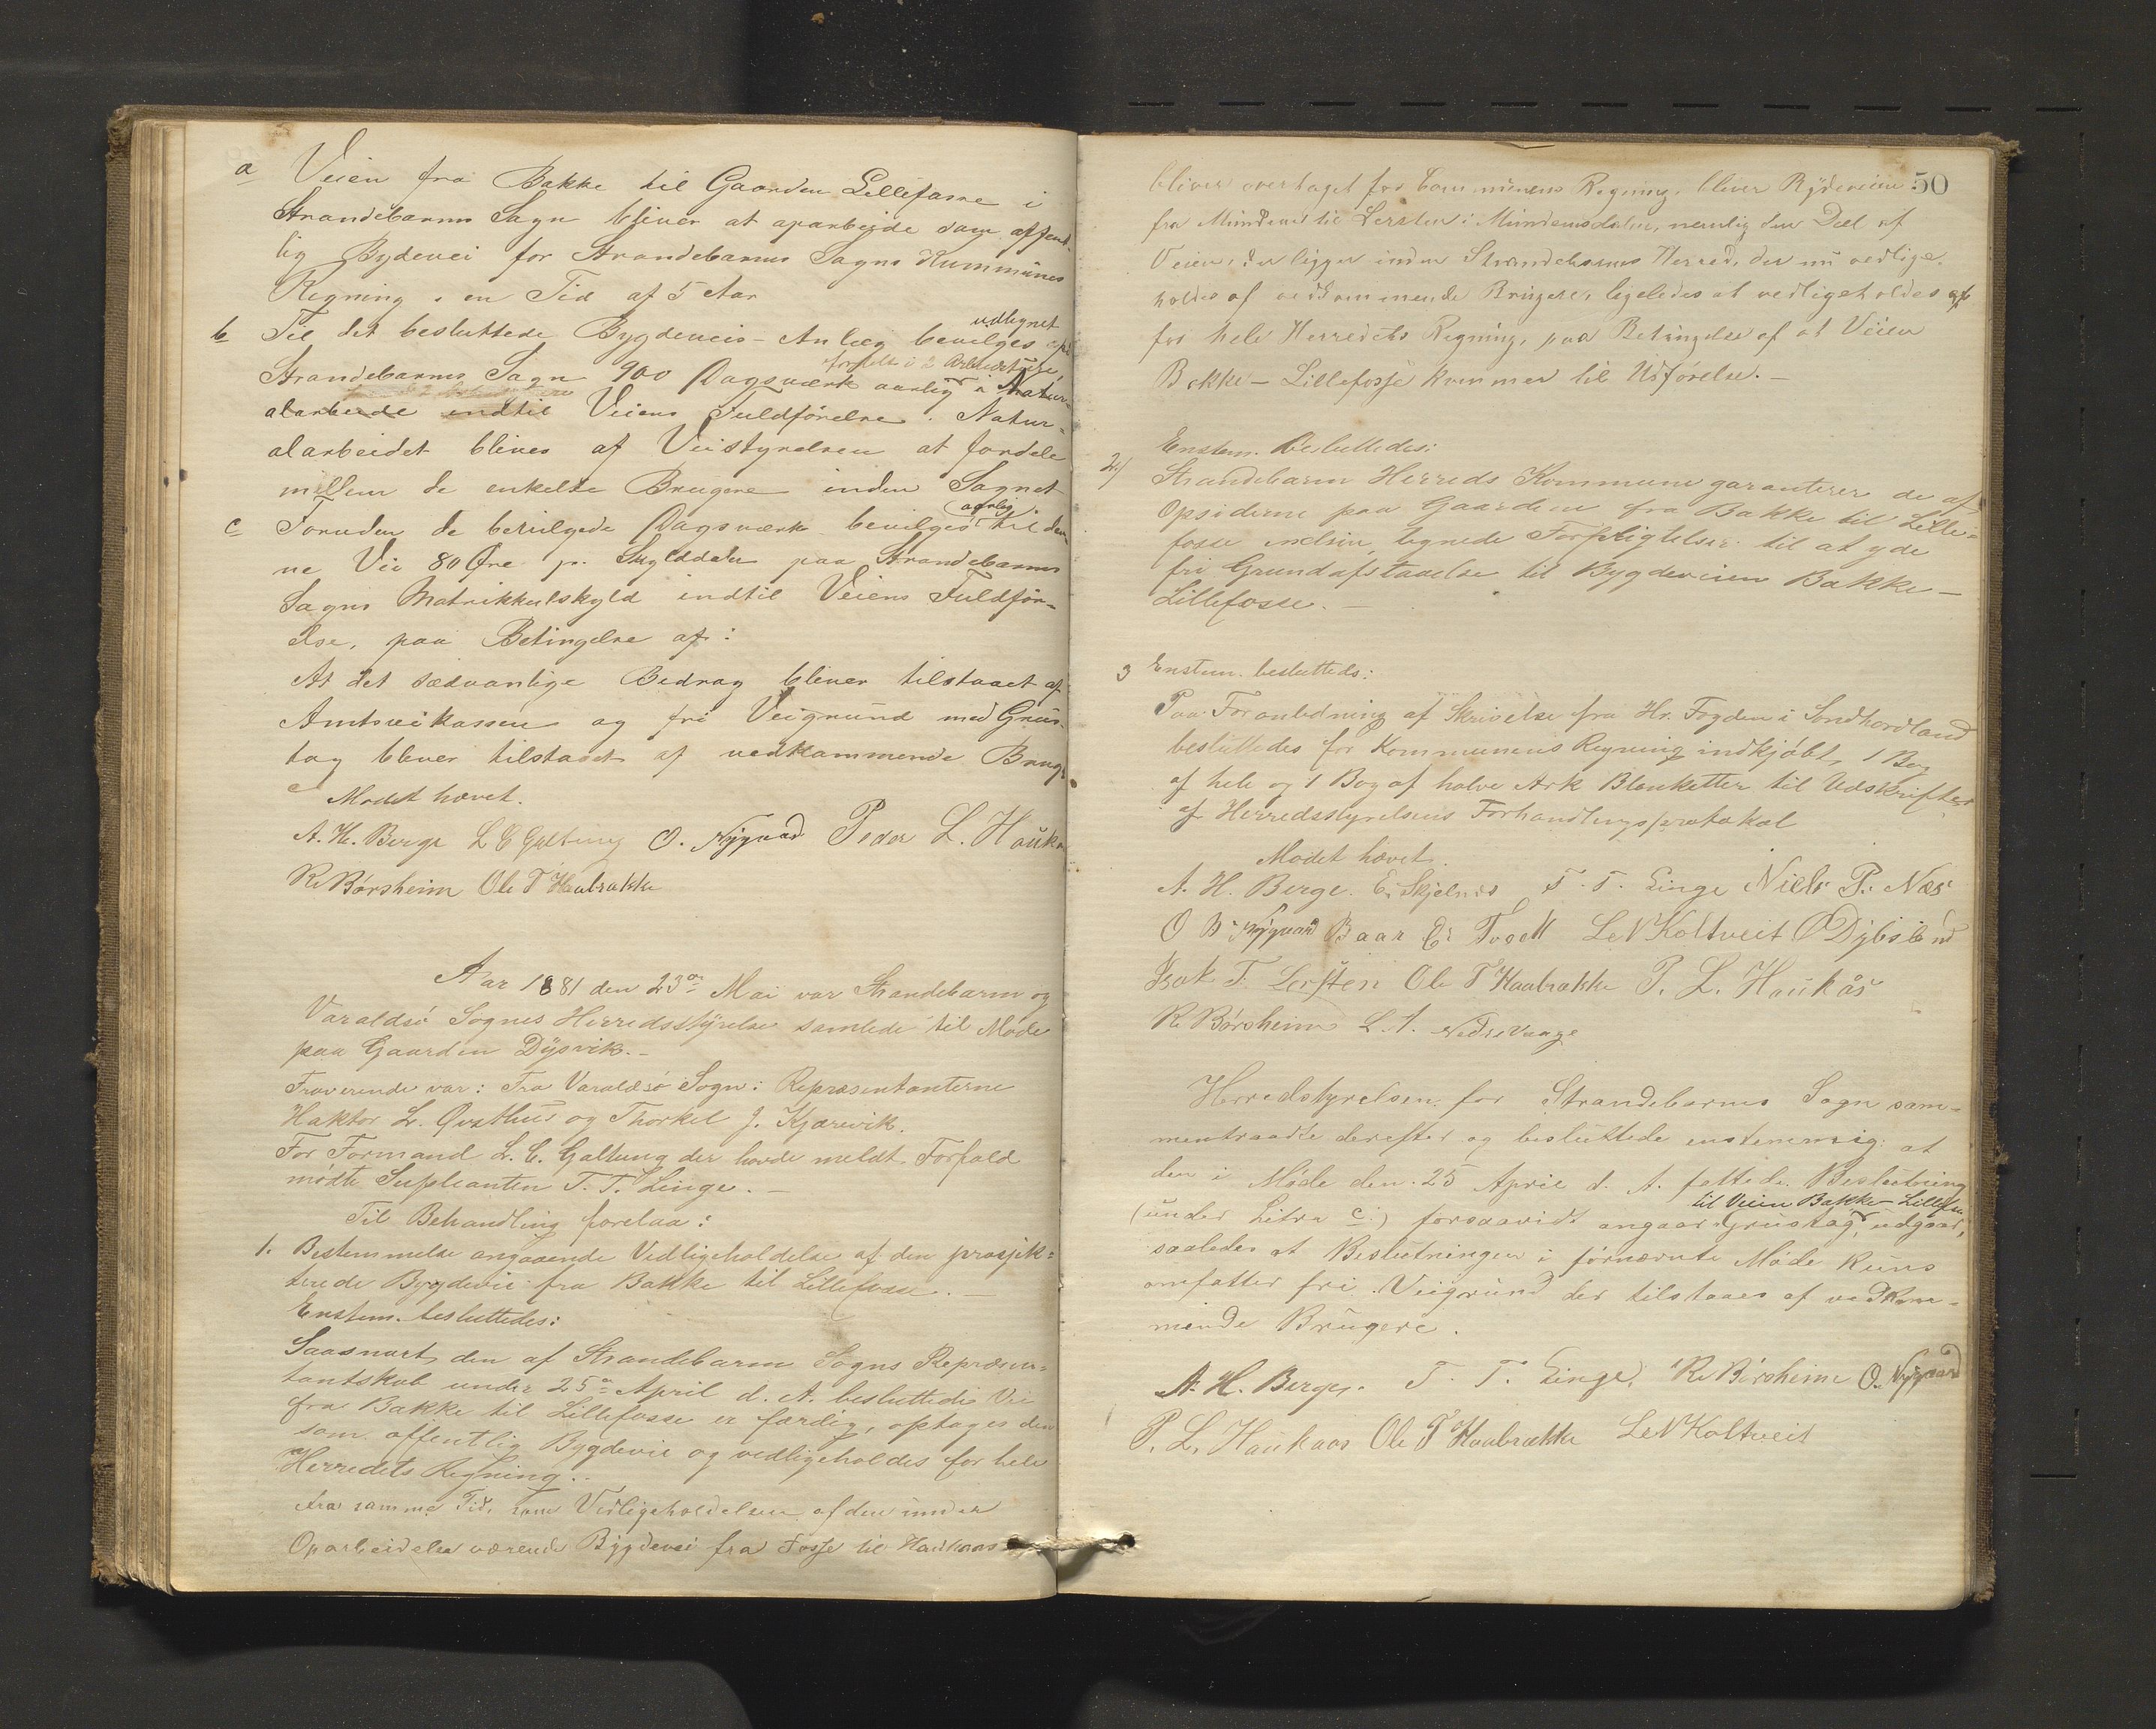 a Veien fra Bakke til Gaarden Lillefosse i
Strandebarms Sogn bliver at oparbejde som offent-
lig Bydevei for Strandebarms Sogns Kummunes
Regning i en Tid af 5 Aar
udlignet
b Til det besluttede Bygdeveis-Anlæg bevilges
fordelt i 2 Arbeidstürer
Strandebarms Sogn 900 Dagsværk aarlig i Natur-
alarbeide indtil Veiens Fuldförelse. Natur-
alarbeidet bliver af Veistyrelsen at fordele
mellem de enkelte Brugere inden Sognet
aarlig
c Foruden de bevilgede Dagsværk bevilges til den-
ne Vei 80 Öre pr. Skylddaler paa Strandebarms
Sogns Matrikkulskyld indtil Veiens Fuldför-
else, paa Betingelse af:
At det sædvanlige Bidrag bliver tilstaaet af
Amtsveikassen og fri Veigrund med Grus-
tag bliver tilstaaet af vedkommende Brug-
Mødet hævet.
A. H. Berge L C Galtung O. Nygaard Peder L. Hauk
R Børsheim Ole T Haabrække
Aar 1881 den 23de Mai var Strandebarm og
Varaldsö Sognes Herredsstyrelse samlede til Møde
paa Gaarden Dysvik.-
Fraværende var: Fra Varaldsö Sogn: Repræsentanterne
Haktor L. Qvithus og Thorkel J. Kjærevik.
For Formand L. C. Galtung der havde meldt Forfald
mødte Suplianten T. T. Linge.-
Til Behandling forelaa:
1. Bestemmelse angaaende Vedligeholdelse af den prosjek-
terede Bygdevei fra Bakke til Lillefosse.-
Enstem. besluttedes:
Saasnart den af Strandebarm Sogns Repræsen-
tantskab under 25de April d. A. besluttede Vei
fra Bakke til Lillefosse er færdig, optages den
som offentlig Bygdevei og vedligeholdes for hele
Herredets Regning.
Fra samme Tid, som Vedligeholdelsen af den under
Oparbeidelse værende Bygdevei fra Fosse til Haukaas
50
bliver overtaget for Communens Regning, bliver Bydeveien
fra Mundem til Lersten i Mundemsdalen, nemlig den Deel af
Veien, der ligger inden Strandebarms Herred, der nu vedlige-
holdes af vedkommende Brugere, ligeledes at vedligeholdes
for hele Herredets Regning, paa Betingelse af at Veien
Bakke - Lillefosse kommer til Udførelse.-
Enstem. Besluttedes:
2) Strandebarm Herreds Kommune garanterer de af
Opsidderne paa Gaardene fra Bakke til Lille-
fosse tegnede Forpligtelser til at yde
fri Grundafstaaelse til Bygdeveien Bakke-
Lillefosse.-
3 Enstem. besluttedes:
Paa Foranledning af Skrivelse fra Hr. Fogden i Söndhordland
besluttedes for Kommunens Regning indkjöbt, 1 Bog
af hele og 1 Bog af halve Ark Blanketter til Udskrifter
af Herredsstyrelsens Forhandlingsprotokol
Mødet hævet.
A. H. Berge. E. Skjelnes T. T. Linge Niels P. Næs
O B Nygaard Baar Er Tvedt Le N Koltveit O Dybsland
Isak T. Lersten Ole T Haabrække P. L. Haukås
R Børsheim L. J. Nedrevaage
Herredstyrelsen for Strandebarms Sogn sam-
mentraadte derefter og besluttede enstemmig: at
den i Møde den 25 April d. A. fattede Beslutning
til Veien Bakke-Lillefos
(under Litra c) forsaavidt angaar Grustag, udgaar,
saaledes at Beslutningen i førnævnte Møde kuns
omfatter fri Veigrund der tilstaaes af vedkom-
mende Brugere.
A. H. Berge. T. T. Linge. R Børsheim O. Nygaard
P. L. Haukaas Ole T Haabrække Le N Koltveit